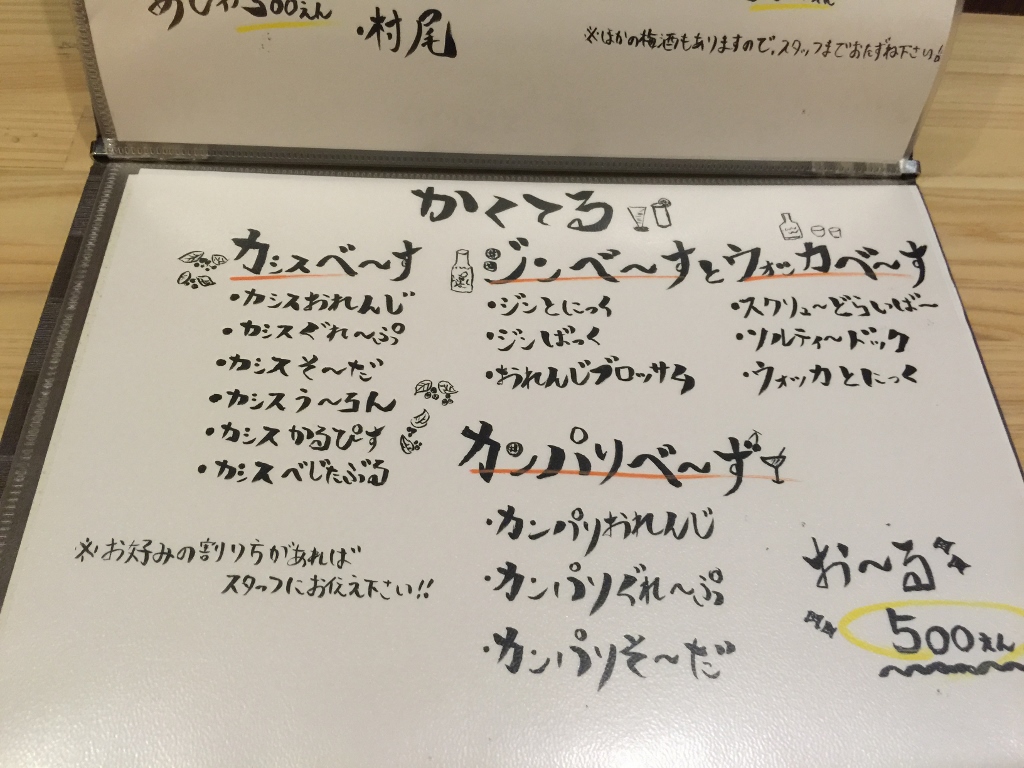 500えん
・村尾
※ほかの梅酒もありますので、スタッフまでおたずね下さい!!
かくてる
カシスべ〜す
・カシスおれんじ
・カシスぐれ〜ぷ
・カシスそ〜だ
・カシスう〜ろん
・カシスかるぴす
・カシスべじたぶる
※お好みの割り方があれば
スタッフにお伝え下さい!!
ジンべ〜すとウォッカべ〜す
・ジンとにっく
・ジンばっく
・おれんじブロッサム
・スクリュ〜どらいば〜
・ソルティ〜ドック
・ウォッカとにっく
カンパリべ〜ず
・カンパリおれんじ
・カンパリぐれ〜ぷ
・カンパリそ〜だ
お〜る
500えん